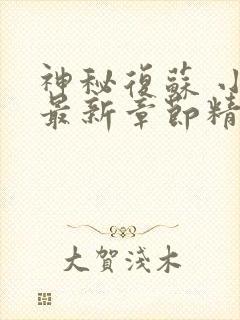 神秘復蘇 小
最新章節精
大賀淺木